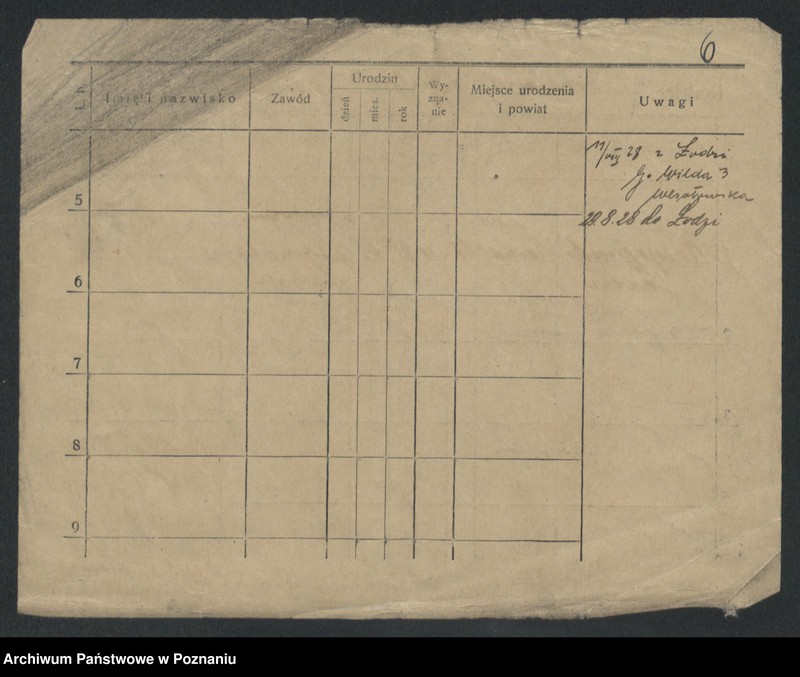 6
L. b.
Imię i nazwisko
Zawód
Urodzin
dzień
mies.
rok
Wy-
zna-
nie
Miejsce urodzenia
i powiat
Uwagi
11/VII 28 z Łodzi
G. Wilda 3
29.8.28 do Łodzi
5
6
7
8
9
Archiwum Państwowe w Poznaniu